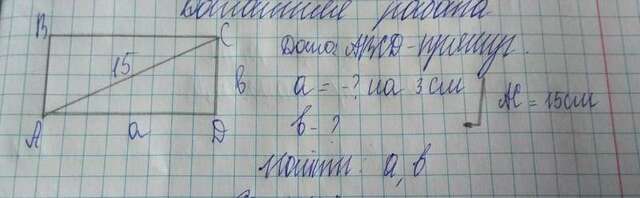 Домашняя работа
B C
Дано: ABCD - прямоуг.
15
в a = -? на 3 см
AC = 15 см
A a D
в - ?
Найти: a, в